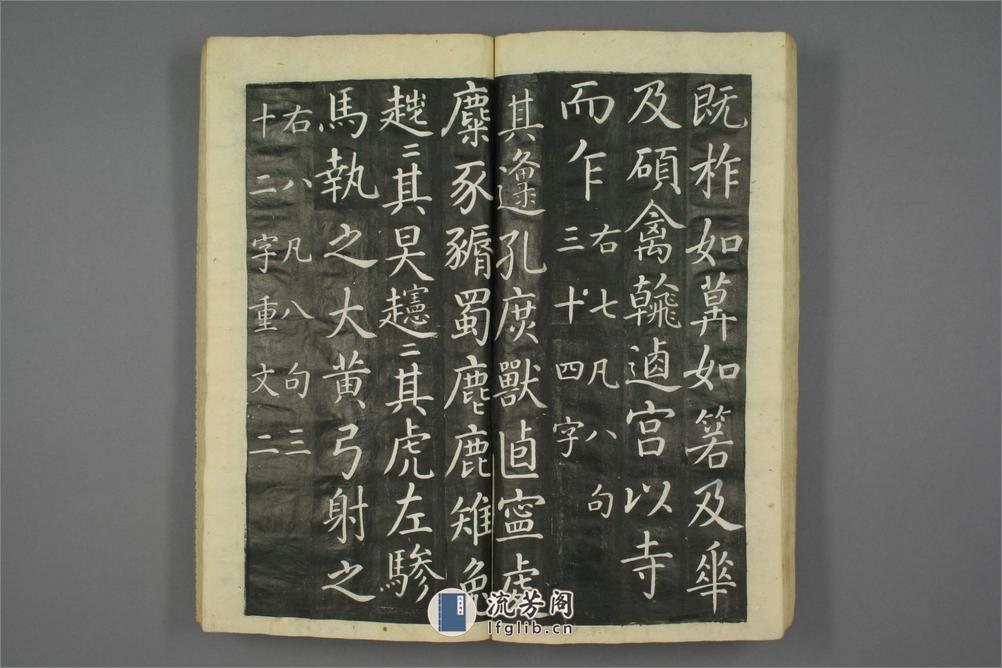 既柞如萛如箬及華
及碩禽𩙿逌宫以寺
而乍
右七凡八句
三十四字
其邍孔庶獸逌寍虎
麋豕豲蜀麀鹿雉兔
趍二其昊趩二其虎左驂
馬執之大黄弓射之
右八凡八句三
十二字重文二
流芳阁
lfglib.cn